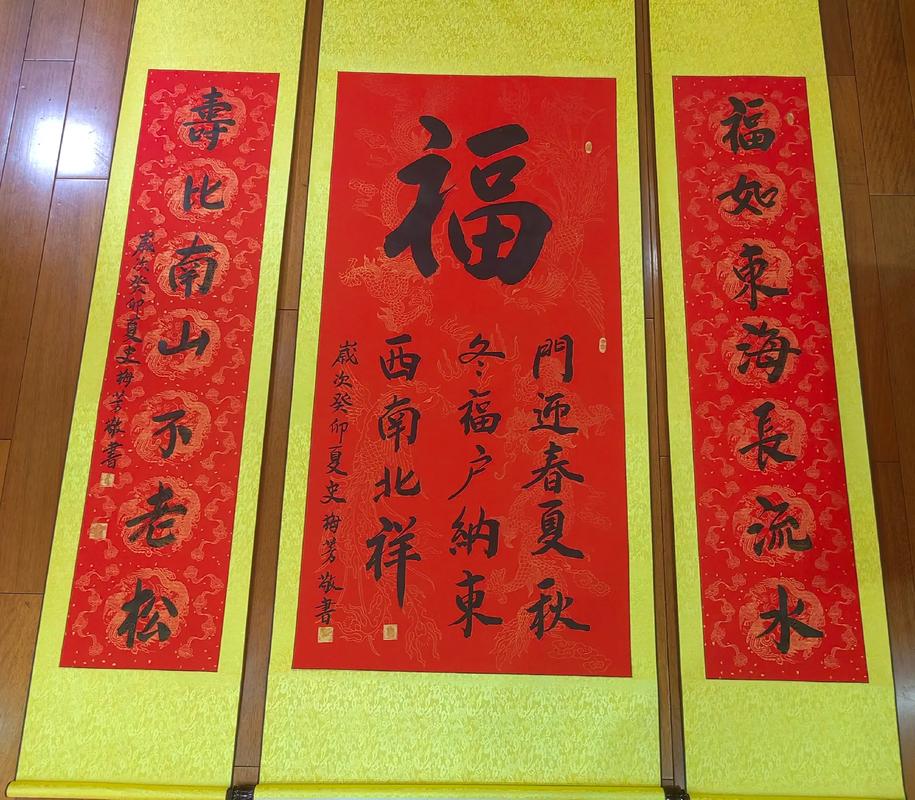 福如東海長流水
福
門迎春夏秋
冬福户納東
西南北祥
歲次癸卯夏史梅芳敬書
壽比南山不老松
歲次癸卯夏史梅芳敬書